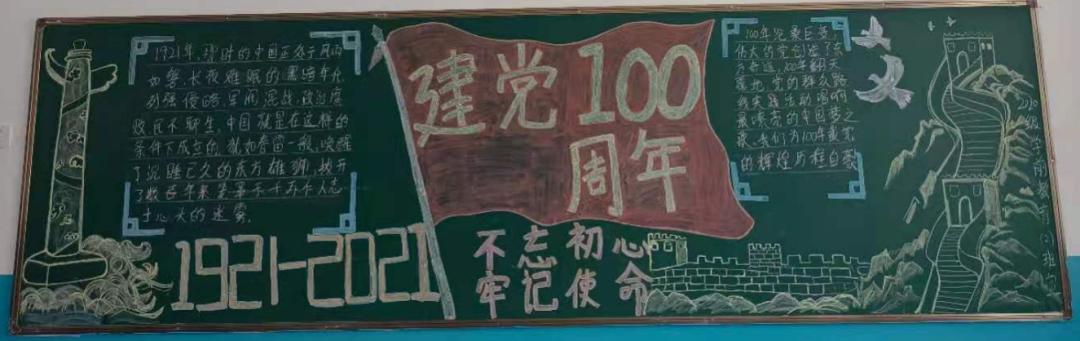 1921年,那时的中国正处于风雨
如磐,长夜难眠的黑暗年代
列强侵略,军阀混战,政治腐
败,民不聊生,中国就是在这样的
条件下成立的,犹如春雷一般,唤醒
了沉睡已久的东方雄狮,拨开
了数百年来笼罩于千万千人志
士心头的迷雾。
1921-2021
建党100
周年
不忘初心
牢记使命
100年沧桑巨变,
伟大的党创造了东
方奇迹,100年翻天
覆地,党的群众路
线实践生动唱响
最嘹亮的中国梦之
歌,我们为100年最累
的辉煌历程自豪
2020级学前教育(2)班